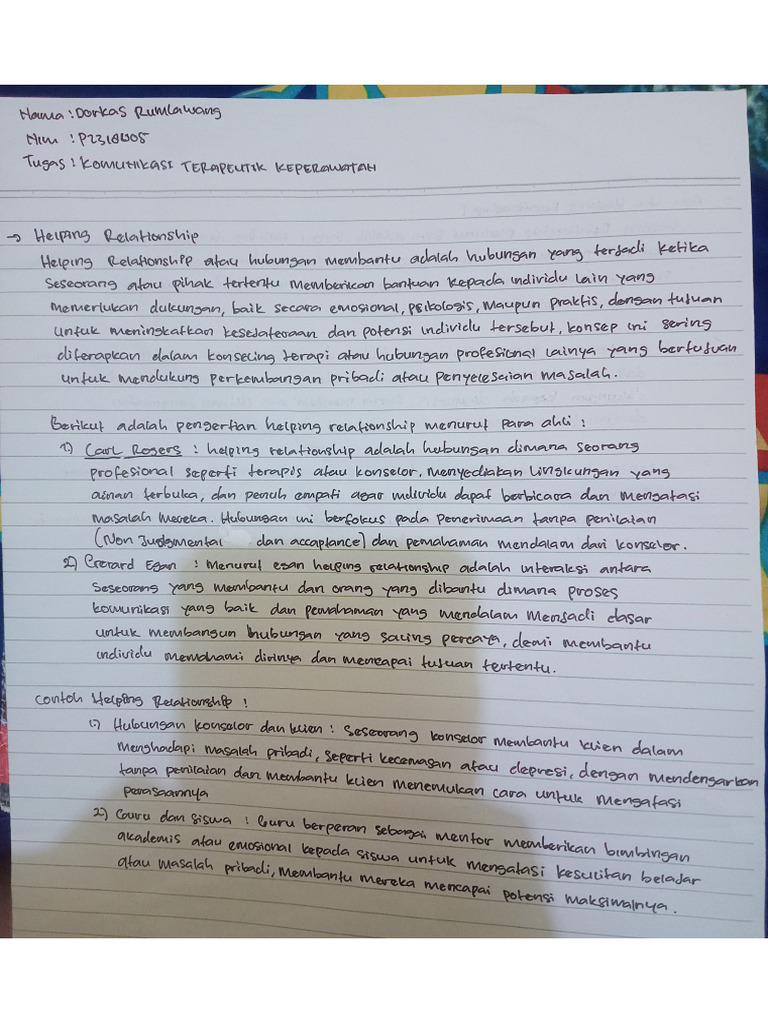 Nama : Dorkas Rumlawang
Nim : P2318005
Tugas : KOMUNIKASI TERAPEUTIK KEPERAWATAN
→ Helping Relationship
Helping Relationship atau hubungan membantu adalah hubungan yang terjadi ketika
Seseorang atau pihak tertentu memberikan bantuan kepada individu lain yang
memerlukan dukungan, baik secara emosional, psikologis, maupun praktis, dengan tujuan
untuk meningkatkan kesejateraan dan potensi individu tersebut, konsep ini sering
diterapkan dalam konseling terapi atau hubungan profesional lainya yang bertujuan
untuk mendukung perkembangan pribadi atau penyelesaian masalah.
Berikut adalah pengertian helping relationship menurut para ahli :
1) Carl Rogers : helping relationship adalah hubungan dimana seorang
profesional seperti terapis atau konselor, menyediakan lingkungan yang
aman terbuka, dan penuh empati agar individu dapat berbicara dan mengatasi
masalah mereka. Hubungan ini berfokus pada penerimaan tanpa penilaian
(Non Judgmental dan accaptance) dan pemahaman mendalam dari konselor.
2) Gerard Egan : Menurut egan helping relationship adalah interaksi antara
Seseorang yang membantu dan orang yang dibantu dimana proses
komunikasi yang baik dan pemahaman yang mendalam menjadi dasar
untuk membangun hubungan yang saling percaya, demi membantu
individu memahami dirinya dan mencapai tujuan tertentu.
Contoh Helping Relationship :
1) Hubungan konselor dan klien : Seseorang konselor membantu klien dalam
menghadapi masalah pribadi, seperti kecemasan atau depresi, dengan mendengarkan
tanpa penilaian dan membantu klien menemukan cara untuk mengatasi
perasaannya
2) Guru dan siswa : Guru berperan sebagai mentor memberikan bimbingan
akademis atau emosional kepada siswa untuk mengatasi kesulitan belajar
atau masalah pribadi, membantu mereka mencapai potensi maksimalnya.